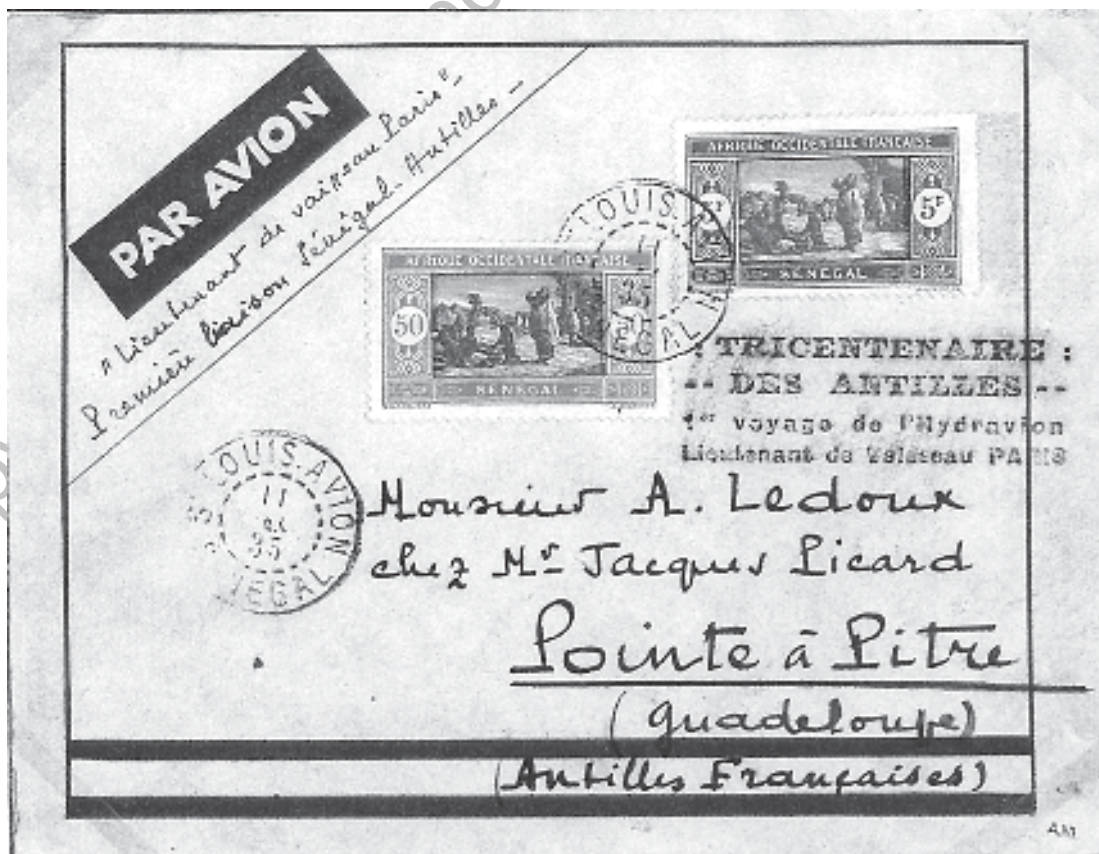 PAR AVION
"Lieutenant de vaisseau Paris"-
Première liaison Sénégal-Antilles-
AFRIQUE OCCIDENTALE FRANÇAISE
5F
SENEGAL
AFRIQUE OCCIDENTALE FRANÇAISE
50
SENEGAL
LOUIS.A
11
35
EGAL
: TRICENTENAIRE :
-- DES ANTILLES --
1er voyage de l'Hydravion
Lieutenant de Vaisseau PARIS
ST LOUIS.AVION
11
35
NEGAL
Monsieur A. Ledoux
chez Mr Jacques Picard
Pointe à Pitre
(Guadeloupe)
(Antilles Françaises)
AM